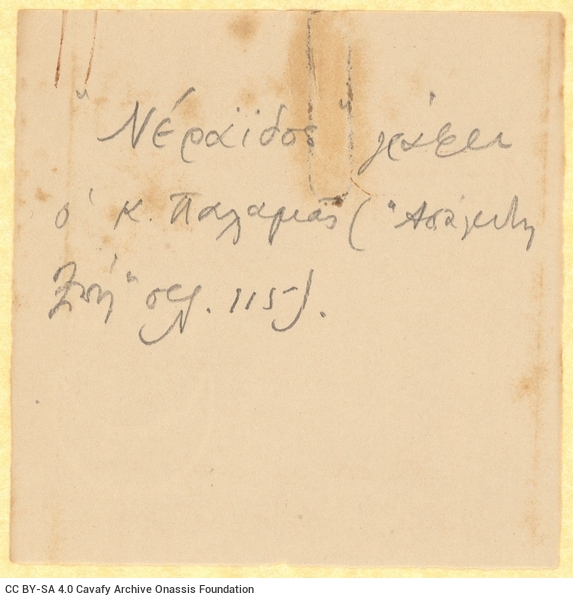 "Νέραϊδος" γράφει
ὁ κ. Παλαμᾶς ("Ἀσάλευτη
Ζωή" σελ. 115).
CC BY-SA 4.0 Cavafy Archive Onassis Foundation